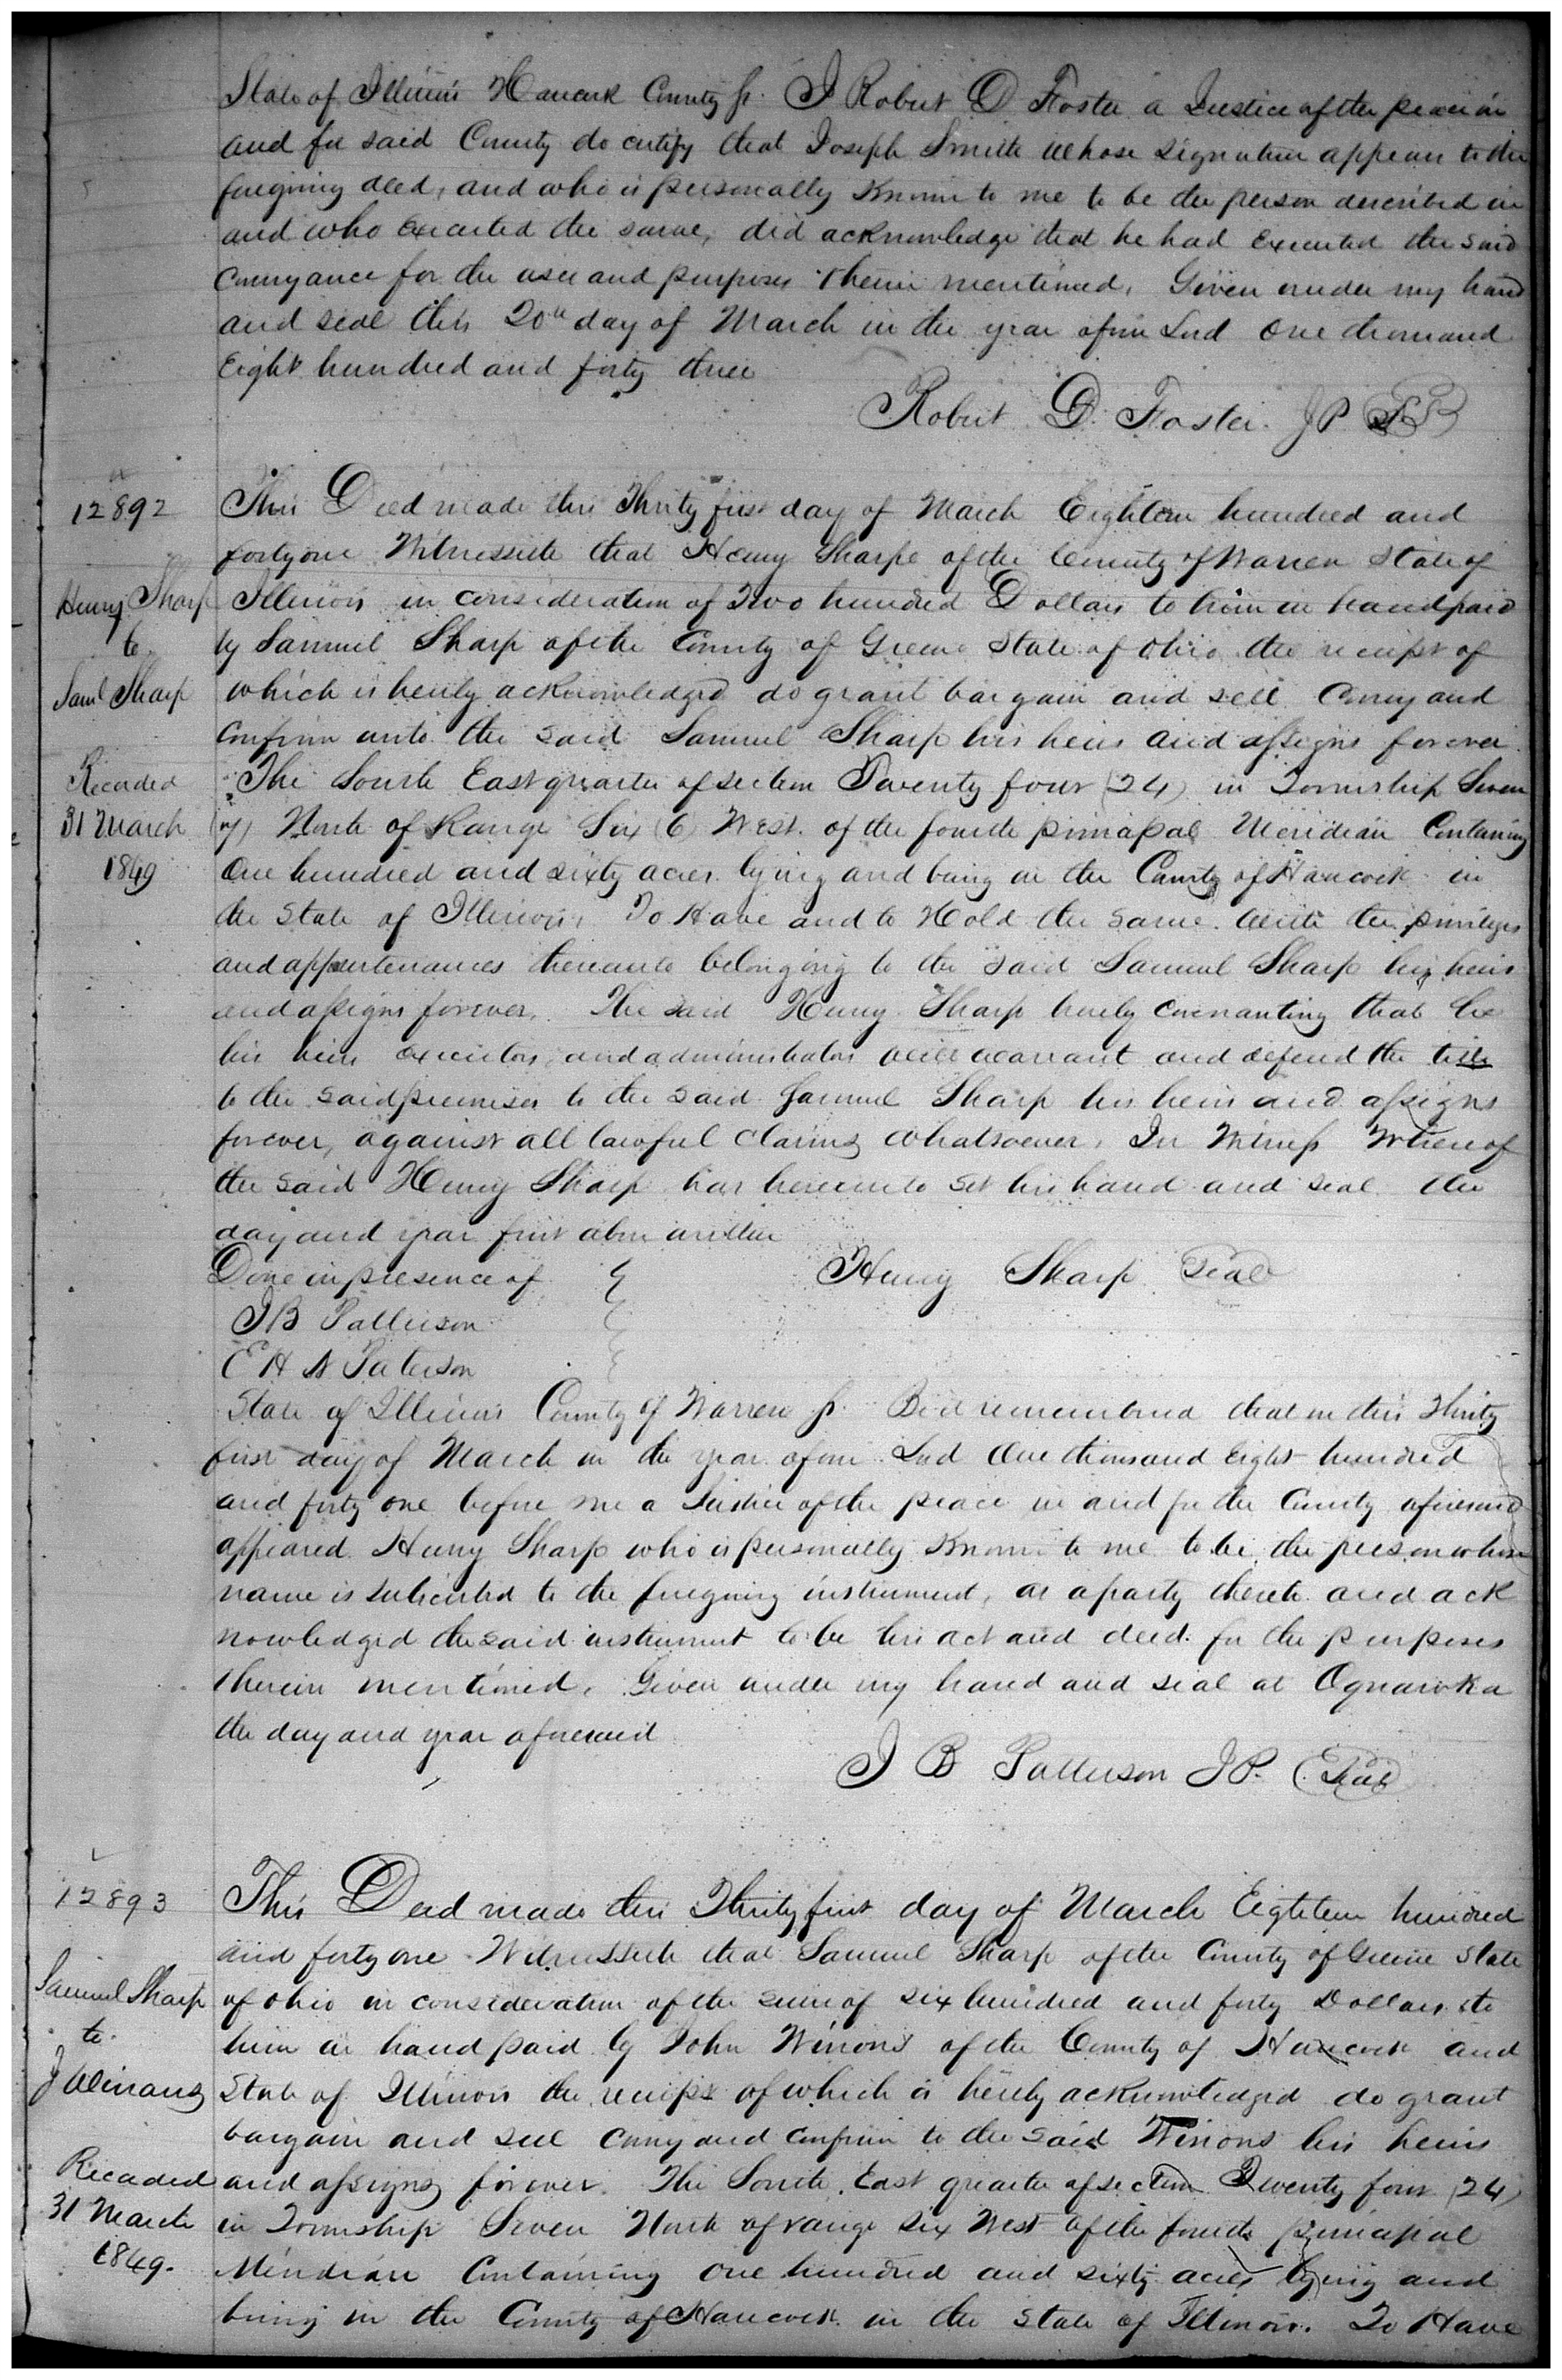 State of Illinois Hancock County ss. I Robert D Foster a Justice of the peace in
and for said County do certify that Joseph Smith whose signature appears to the
foregoing deed, and who is personally Known to me to be the person described in
and who Executed the same, did acknowledge that he had Executed the said
Conveyance for the uses and purposes therein mentioned. Given under my hand
and seal this 20th day of March in the year of our Lord One thousand
Eight hundred and forty three
Robert D. Foster. J P
12892
This Deed made this Thirty first day of March Eighteen hundred and
forty one Witnesseth that Henry Sharpe of the County of Warren State of
Henry Sharp
Illinois in consideration of Two hundred Dollars to him in hand paid
to
by Samuel Sharp of the County of Greene State of Ohio the receipt of
Saml Sharp
which is hereby acknowledged do grant bargain and sell Convey and
Confirm unto the said Samuel Sharp his heirs and assigns forever.
Recorded
The South East quarter of section Twenty four (24) in Township Seven
31 March
(7) North of Range Six (6) West of the fourth principal Meridian Containing
1849
One hundred and sixty acres lying and being in the County of Hancock in
the State of Illinois, To Have and to Hold the same with the privileges
and appurtenances thereunto belonging to the said Samuel Sharp his heirs
and assigns forever, The said Henry Sharp hereby covenanting that he
his heirs executors, and administrators will warrant and defend the title
to the said premises to the said Samuel Sharp his heirs and assigns
forever, against all lawful claims whatsoever, In Witness Whereof
the said Henry Sharp has hereunto set his hand and seal the
day and year first above written
Done in presence of
Henry Sharp Seal
J B Patterson
E H N Paterson
State of Illinois County of Warren ss. Be it remembered that on this Thirty
first day of March in the year of our Lord One thousand Eight hundred
and forty one before me a Justice of the peace in and for the County aforesaid
appeared Henry Sharp who is personally Known to me to be the person whose
name is subscribed to the foregoing instrument, as a party thereto and ack
nowledged the said instrument to be his act and deed for the purposes
therein mentioned. Given under my hand and seal at Oquawka
the day and year aforesaid
J B Patterson J P. Seal
12893
This Deed made this Thirty first day of March Eighteen hundred
and forty one Witnesseth that Samuel Sharp of the County of Greene State
Samuel Sharp
of Ohio in consideration of the sum of six hundred and forty Dollars to
to
him in hand paid by John Winons of the County of Hancock and
J Winans
State of Illinois the receipt of which is hereby acknowledged do grant
bargain and sell Convey and Confirm to the said Winons his heirs
Recorded
and assigns forever. The South East quarter of section Twenty four (24)
31 March
in Township Seven North of range six West of the fourth principal
1849.
Meridian Containing One hundred and sixty acres lying and
being in the County of Hancock in the State of Illinois. To Have